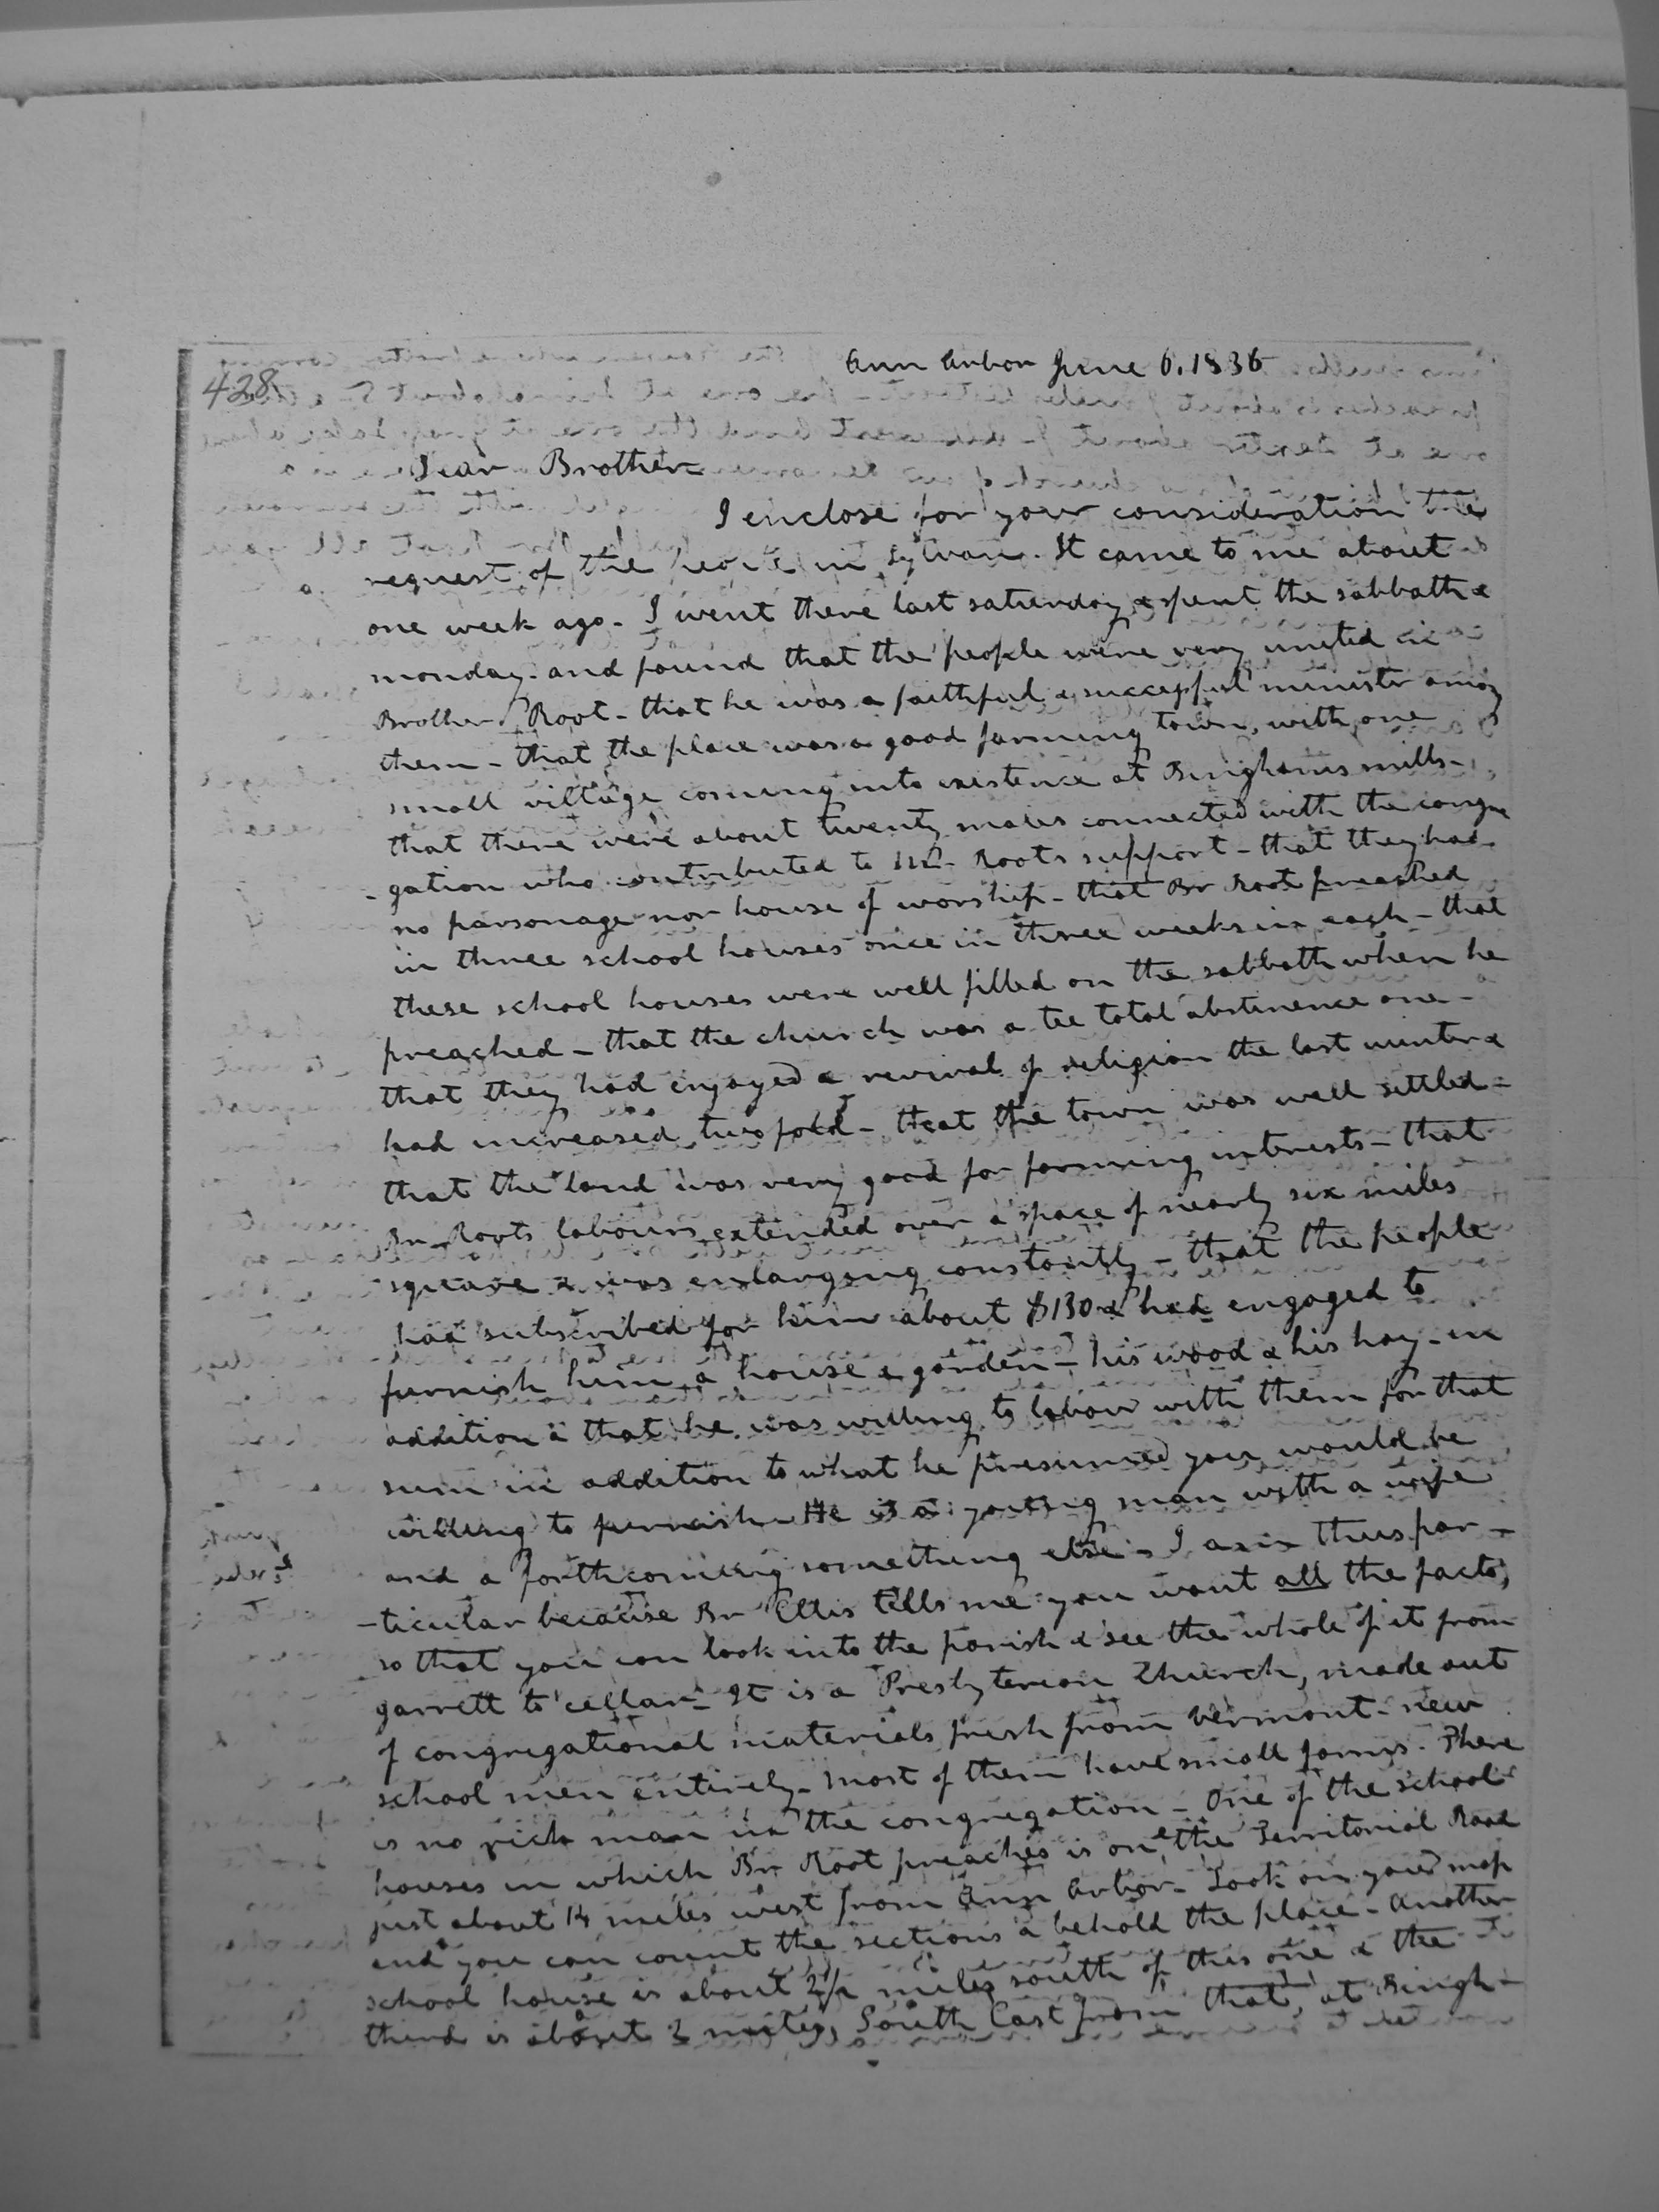 Ann Arbor June 6. 1836
428
Dear Brother
I enclose for your consideration the
request of the people in Sylvan. It came to me about
one week ago - I went there last saturday & spent the sabbath &
monday - and found that the people were very united in
Brother Root - that he was a faithful & successful minister among
them - that the place was a good farming town, with one
small village coming into existence at Binghams mills -
that there were about twenty males connected with the congre
-gation who contributed to Mr. Roots support - that they had
no parsonage nor house of worship - that Br Root preached
in three school houses once in three weeks in each - that
these school houses were well filled on the sabbath when he
preached - that the church was a tee total abstinence one -
that they had enjoyed a revival of religion the last winter &
had increased two fold - that the town was well settled -
that the land was very good for farming interests - that
Br Roots labours extended over a space of nearly six miles
square & was enlarging constantly - that the people
had subscribed for him about $130 & had engaged to
furnish him a house & garden - his wood & his hay - in
addition & that he was willing to labour with them for that
sum in addition to what he presumed you would be
willing to furnish - He is a young man with a wife
and a forthcoming something else - I am thus par-
-ticular because Br Ellis tells me you want all the facts,
so that you can look into the parish & see the whole of it from
garrett to cellar - It is a Presbyterian Church, made out
of congregational materials fresh from Vermont - new
school men entirely - most of them have small farms. There
is no rich man in the congregation - One of the school
houses in which Br Root preaches is on the Territorial Road
just about 14 miles west from Ann Arbor - Look on your map
and you can count the sections & behold the place - Another
school house is about 2½ miles south of this one & the
third is about miles, South East from that, at Bingh-